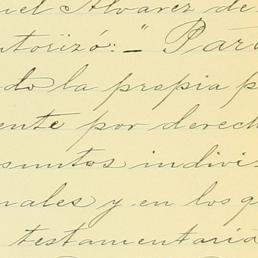 uel Alvarez de
utorizó: " Para
do la propia p
ente por derech
suntos indivi
nales y en los q
testamentaria